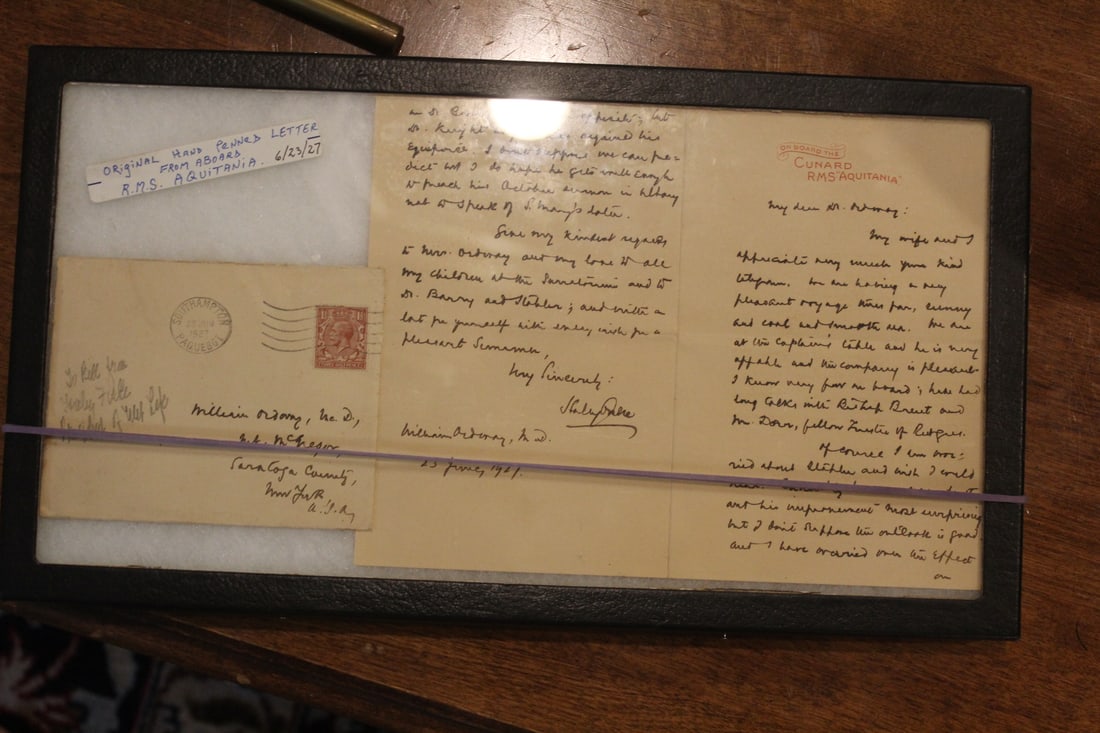 ORIGINAL HAND PENNED LETTER
FROM ABOARD
R.M.S. AQUITANIA. 6/23/27
SOUTHAMPTON
1927
PAQUEBOT
To Bill from
William Ordway, M.D.,
Mt. McGregor,
Saratoga County,
New York
U.S.A.
on Dr. opposite; but
Dr. Knight against his
I don't suppose we can pre-
dict but I do hope he gets well enough
to preach his October sermon in Albany
not to speak of St. Mary's later.
Give my kindest regards
to Mrs. Ordway and my love to all
my children at the Sanatorium and to
Dr. Barry and Stabler; and with a
lot for yourself with every wish for a
pleasant Summer,
Very Sincerely:
William Ordway, M.D.
23 June, 1927.
ON BOARD THE
CUNARD
RMS "AQUITANIA"
My dear Dr. Ordway:
My wife and I
appreciate very much your kind
telegram. We are having a very
pleasant voyage thus far, sunny
and cool and smooth sea. We are
at the Captain's table and he is very
affable and the company is pleasant.
I know very few on board; have had
long talks with Bishop Brent and
Mr. Dorr, fellow Trustee of Rutgers.
Of course I am wor-
ried about and wish I could
and his improvement most surprising
but I don't suppose the outlook is good
and I have worried over the effect
on